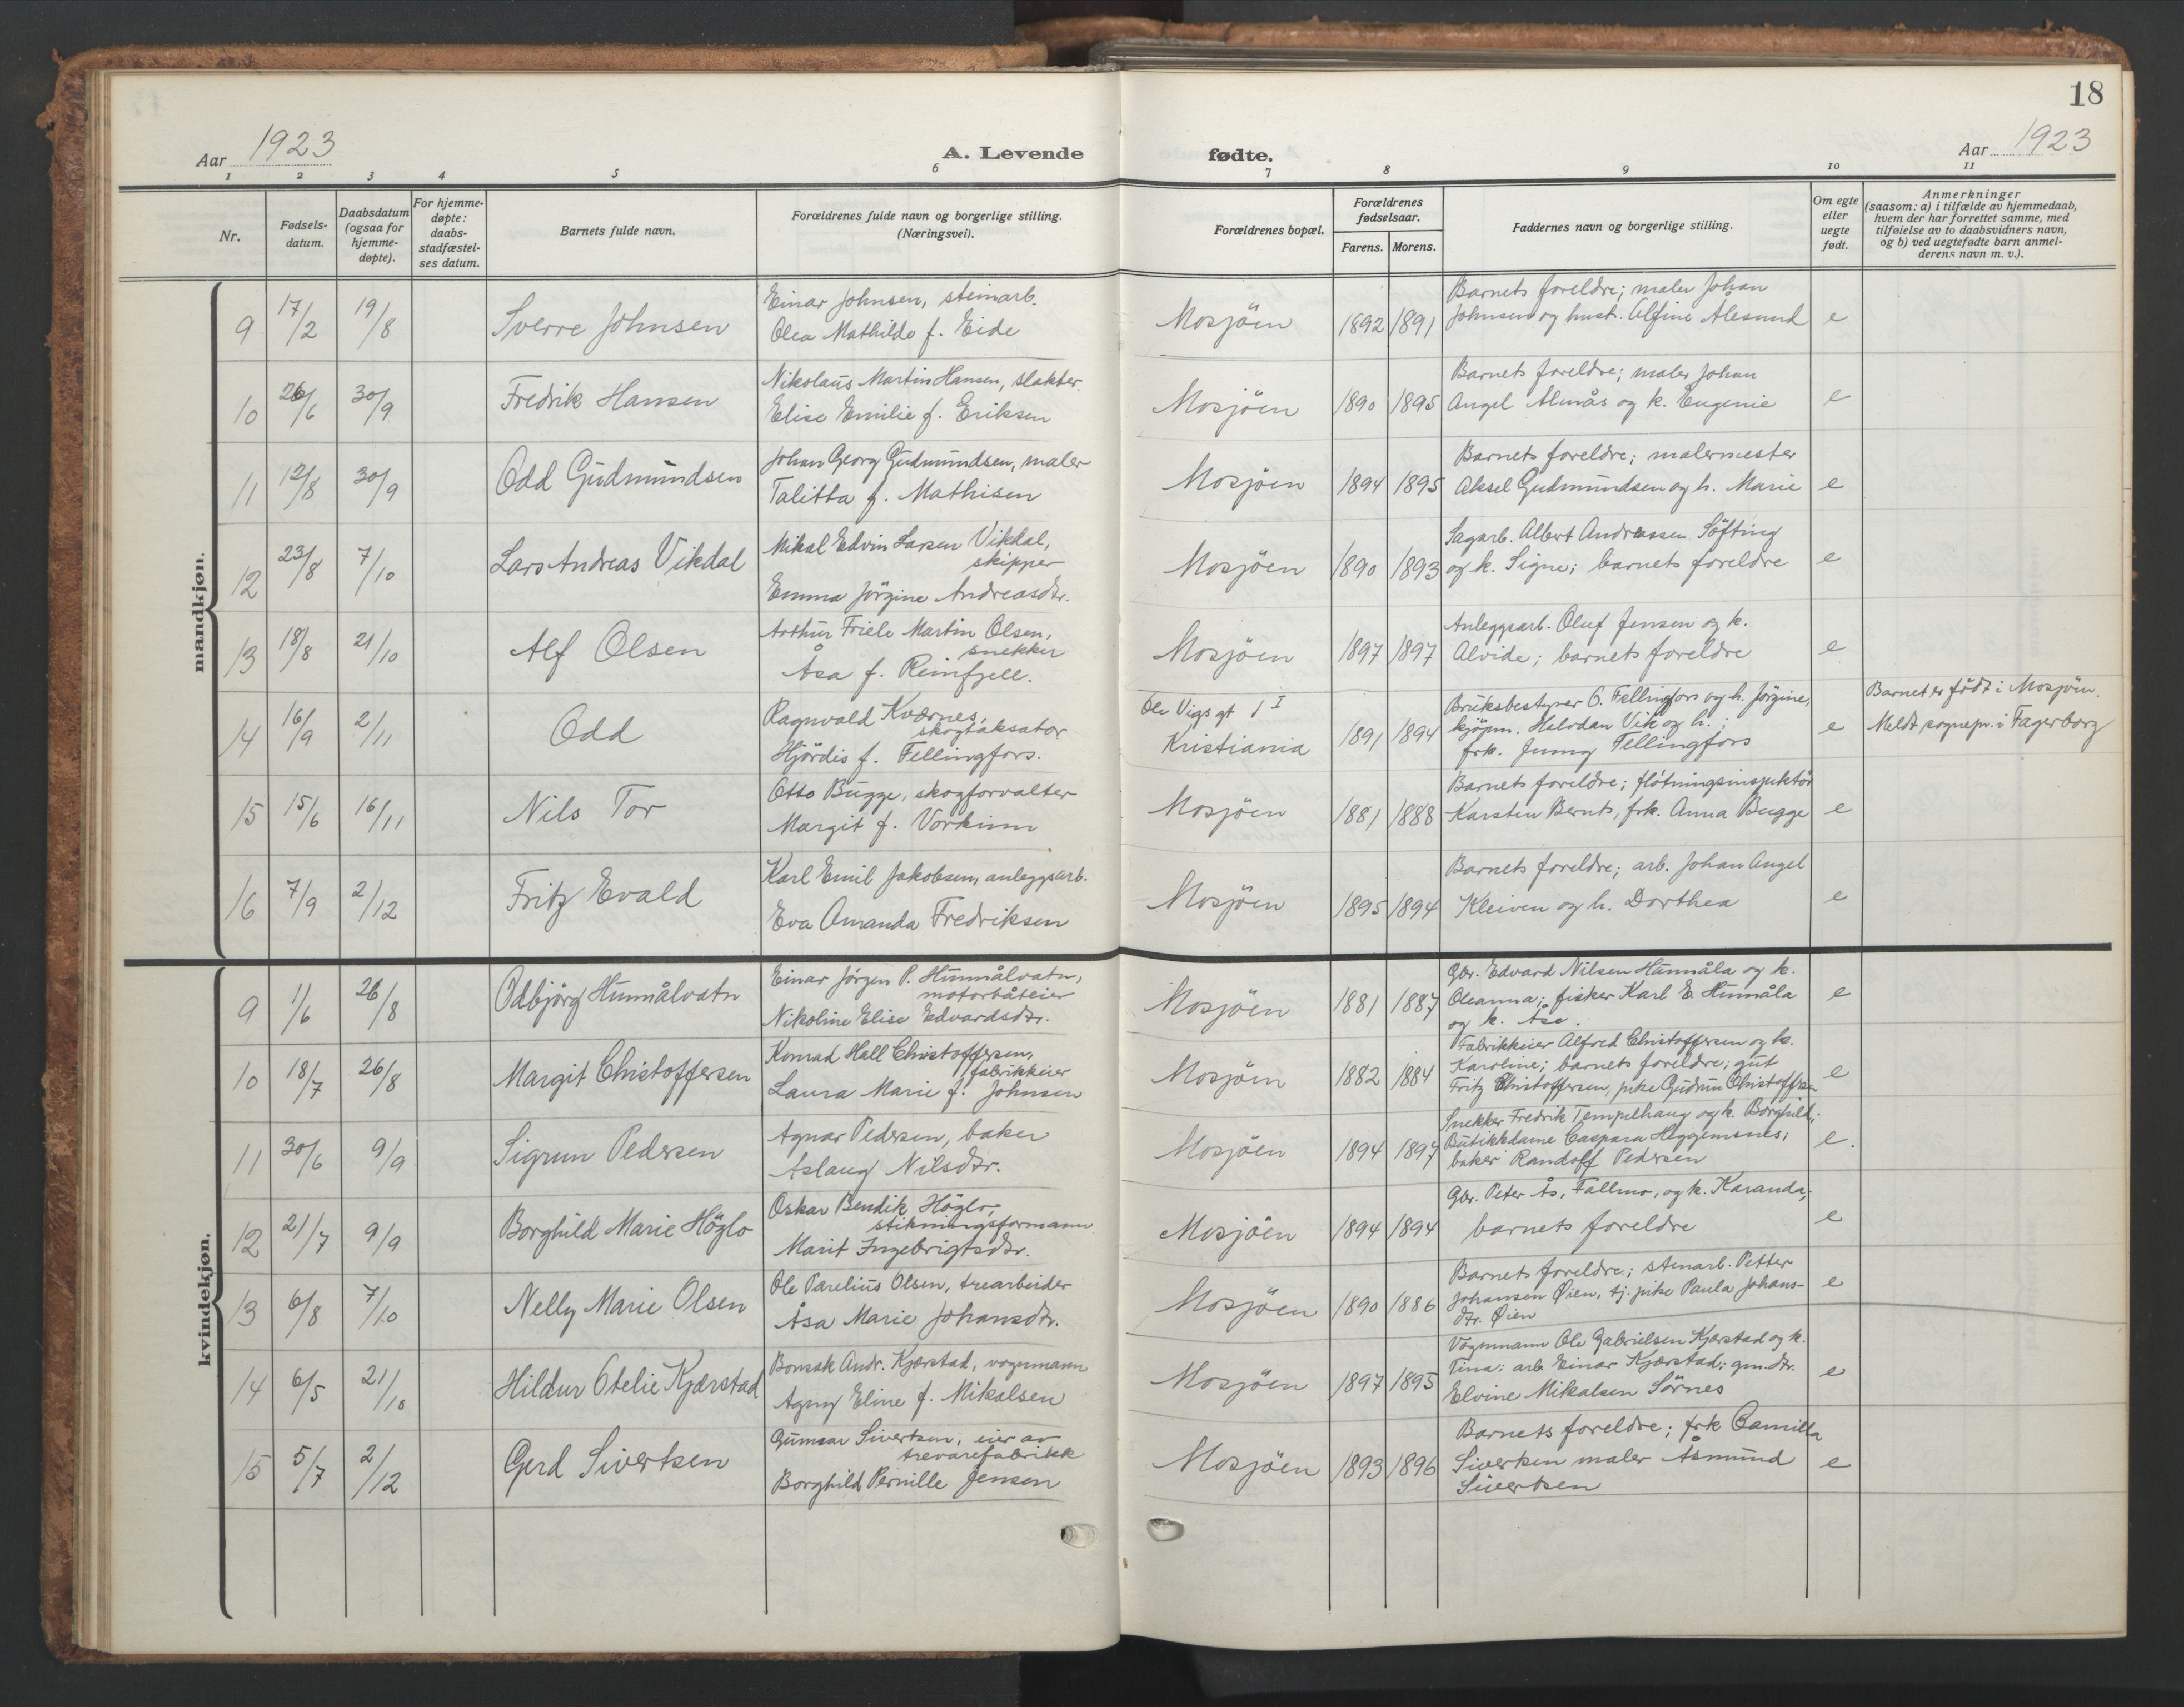 18
Aar 1923
A. Levende
fødte.
Aar 1923
1 2 3 4 5 6 7 8 9 10 11
Nr.
Fødsels-
datum.
Daabsdatum
(ogsaa for
hjemme-
døpte).
For hjemme-
døpte:
daabs-
stadfæstel-
ses datum.
Barnets fulde navn.
Forældrenes fulde navn og borgerlige stilling.
(Næringsvei).
Forældrenes bopæl.
Forældrenes
fødselsaar.
Farens. Morens.
Faddernes navn og borgerlige stilling.
Om egte
eller
uegte
født.
Anmerkninger
(saasom: a) i tilfælde av hjemmedaab,
hvem der har forrettet samme, med
tilføielse av to daabsvidners navn,
og b) ved uegtefødte barn anmel-
derens navn m. v.).
mandkjøn.
9 17/2 19/8 Sverre Johnsen
Einar Johnsen, steinarb.
Olea Mathilde f. Eide
Mosjöen 1892 1891
Barnets foreldre; maler Johan
Johnsen og hust. Alfine Alesund e
10 26/6 30/9 Fredrik Hansen
Nikolaus Martin Hansen, slakter.
Elise Emilie f. Eriksen
Mosjöen 1890 1895
Barnets foreldre; maler Johan
Angel Almås og k. Eugenie e
11 12/8 30/9 Odd Gudmundsen
Johan Georg Gudmundsen, maler
Talitta f. Mathisen
Mosjöen 1894 1895
Barnets foreldre; malermester
Aksel Gudmundsen og h. Marie e
12 23/8 7/10 Lars Andreas Vikdal
Mikal Edvin Larsen Vikdal,
skipper
Emma Jörgine Andreasdtr.
Mosjöen 1890 1893
Sagarb. Albert Andreassen Söfting
og k. Signe; barnets foreldre e
13 18/8 21/10 Alf Olsen
Arthur Friele Martin Olsen,
snekker
Åsa f. Reinfjell.
Mosjöen 1897 1897
Anleggsarb. Oluf Jensen og k.
Alvide; barnets foreldre e
14 16/9 2/11 Odd
Ragnvald Kværnes,
skogtaksator
Hjördis f. Fellingfors.
Ole Vigs gt 1 I
Kristiania 1891 1894
Bruksbestyrer O. Fellingfors og h. Jörgine,
kjöpm. Halvdan Vik og h.;
frk. Jenny Fellingfors e
Barnet er födt i Mosjöen.
Meldt sognepr. i Fagerborg
15 15/6 16/11 Nils Tor
Otto Bugge, skogforvalter
Margit f. Vorkinn
Mosjöen 1881 1888
Barnets foreldre; flötningsinspektör
Karsten Bernts, frk. Anna Bugge e
16 7/9 2/12 Fritz Evald
Karl Emil Jakobsen, anleggsarb.
Eva Amanda Fredriksen
Mosjöen 1895 1894
Barnets foreldre; arb. Johan Angel
Kleiven og h. Dorthea e
kvindekjøn.
9 1/6 26/8 Odbjörg Hunnålvatn
Einar Jörgen P. Hunnålvatn,
motorbåteier
Nikoline Elise Edvardsdtr.
Mosjöen 1881 1887
Gbr. Edvard Nilsen Hunnåla og k.
Oleanna; fisker Karl E. Hunnåla
og k. Åse. e
10 18/7 26/8 Margit Christoffersen
Konrad Hall Christoffersen,
fabrikkeier
Laura Marie f. Johnsen
Mosjöen 1882 1884
Fabrikkeier Alfred Christoffersen og k.
Karoline; barnets foreldre; gut
Fritz Christoffersen, pike Gudrun Christoffersen e
11 30/6 9/9 Sigrun Pedersen
Agnar Pedersen, baker
Aslaug Nilsdtr.
Mosjöen 1894 1897
Snekker Fredrik Tempelhaug og k. Borghild;
Butikkdame Caspara Heggemsnes;
baker Randolf Pedersen e.
12 21/7 9/9 Borghild Marie Höglo
Oskar Bendik Höglo,
stikningsformann
Marit Ingebrigtsdtr.
Mosjöen 1894 1894
Gbr. Peter Ås, Fallmo, og k. Karanda;
barnets foreldre e
13 6/8 7/10 Nelly Marie Olsen
Ole Parelius Olsen, trearbeider
Åsa Marie Johansdtr.
Mosjöen 1890 1886
Barnets foreldre; stenarb. Petter
Johansen Øien, tj. pike Paula Johans-
dtr. Øien e
14 6/5 21/10 Hildur Otelie Kjærstad
Bonsak Andr. Kjærstad, vognmann
Agny Eline f. Mikalsen
Mosjöen 1897 1895
Vognmann Ole Gabrielsen Kjærstad og k.
Tina; arb Einar Kjærstad; gm. dtr.
Elvine Mikalsen Sörnes e
15 5/7 2/12 Gerd Sivertsen
Gunnar Sivertsen, eier av
trevarefabrikk
Borghild Pernille Jensen
Mosjöen 1893 1896
Barnets foreldre; frk Camilla
Sivertsen maler Åsmund
Sivertsen e